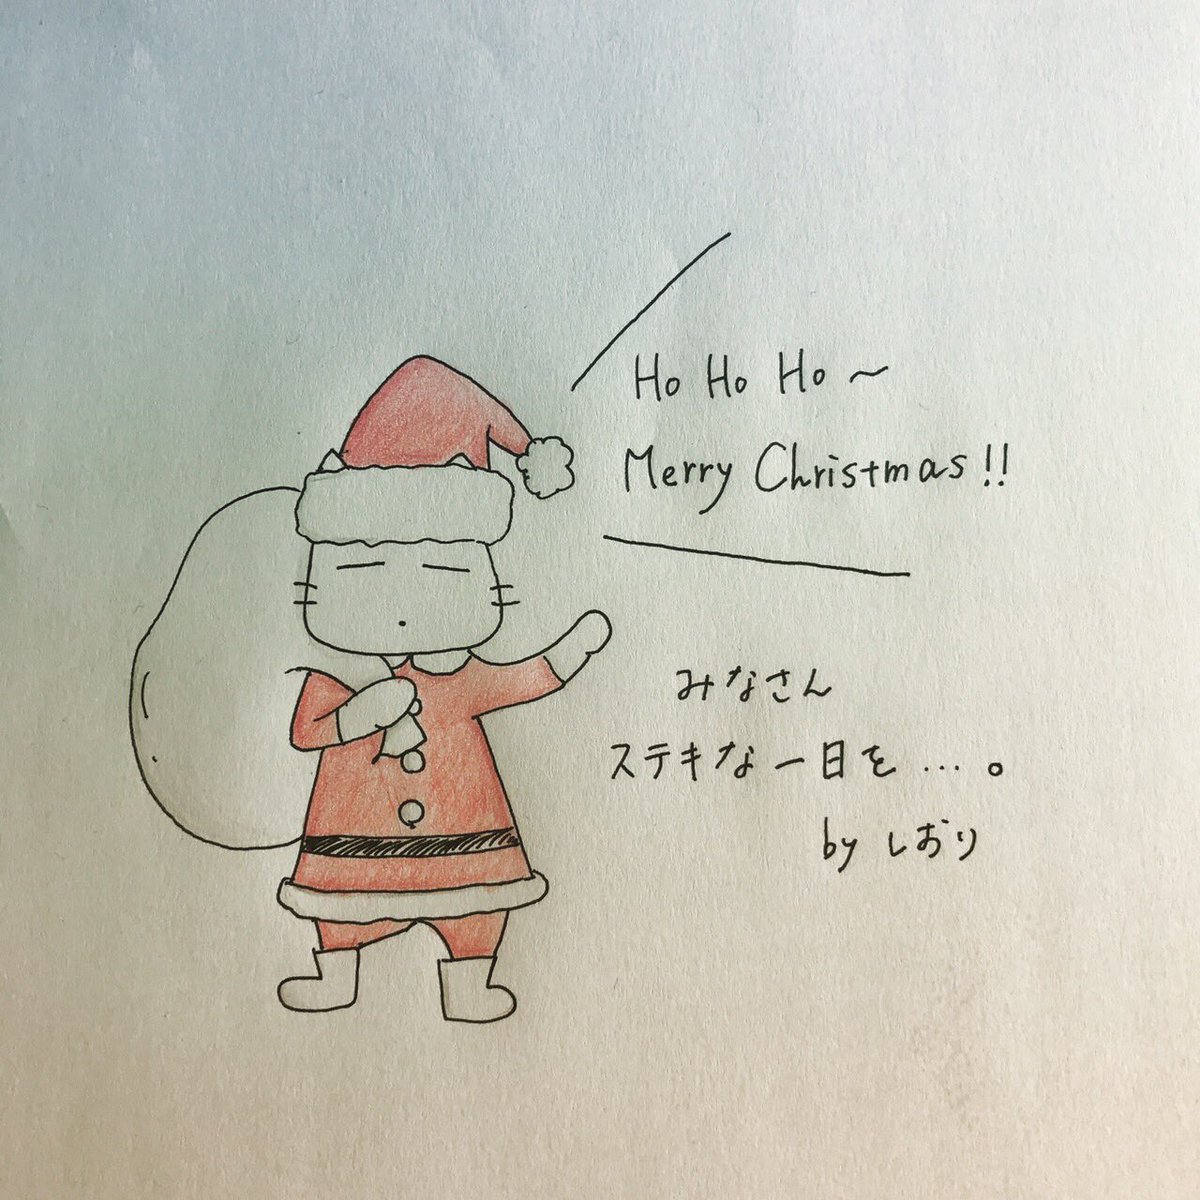 Ho Ho Ho ～
Merry Christmas!!
みなさん
ステキな一日を…。
by しおり